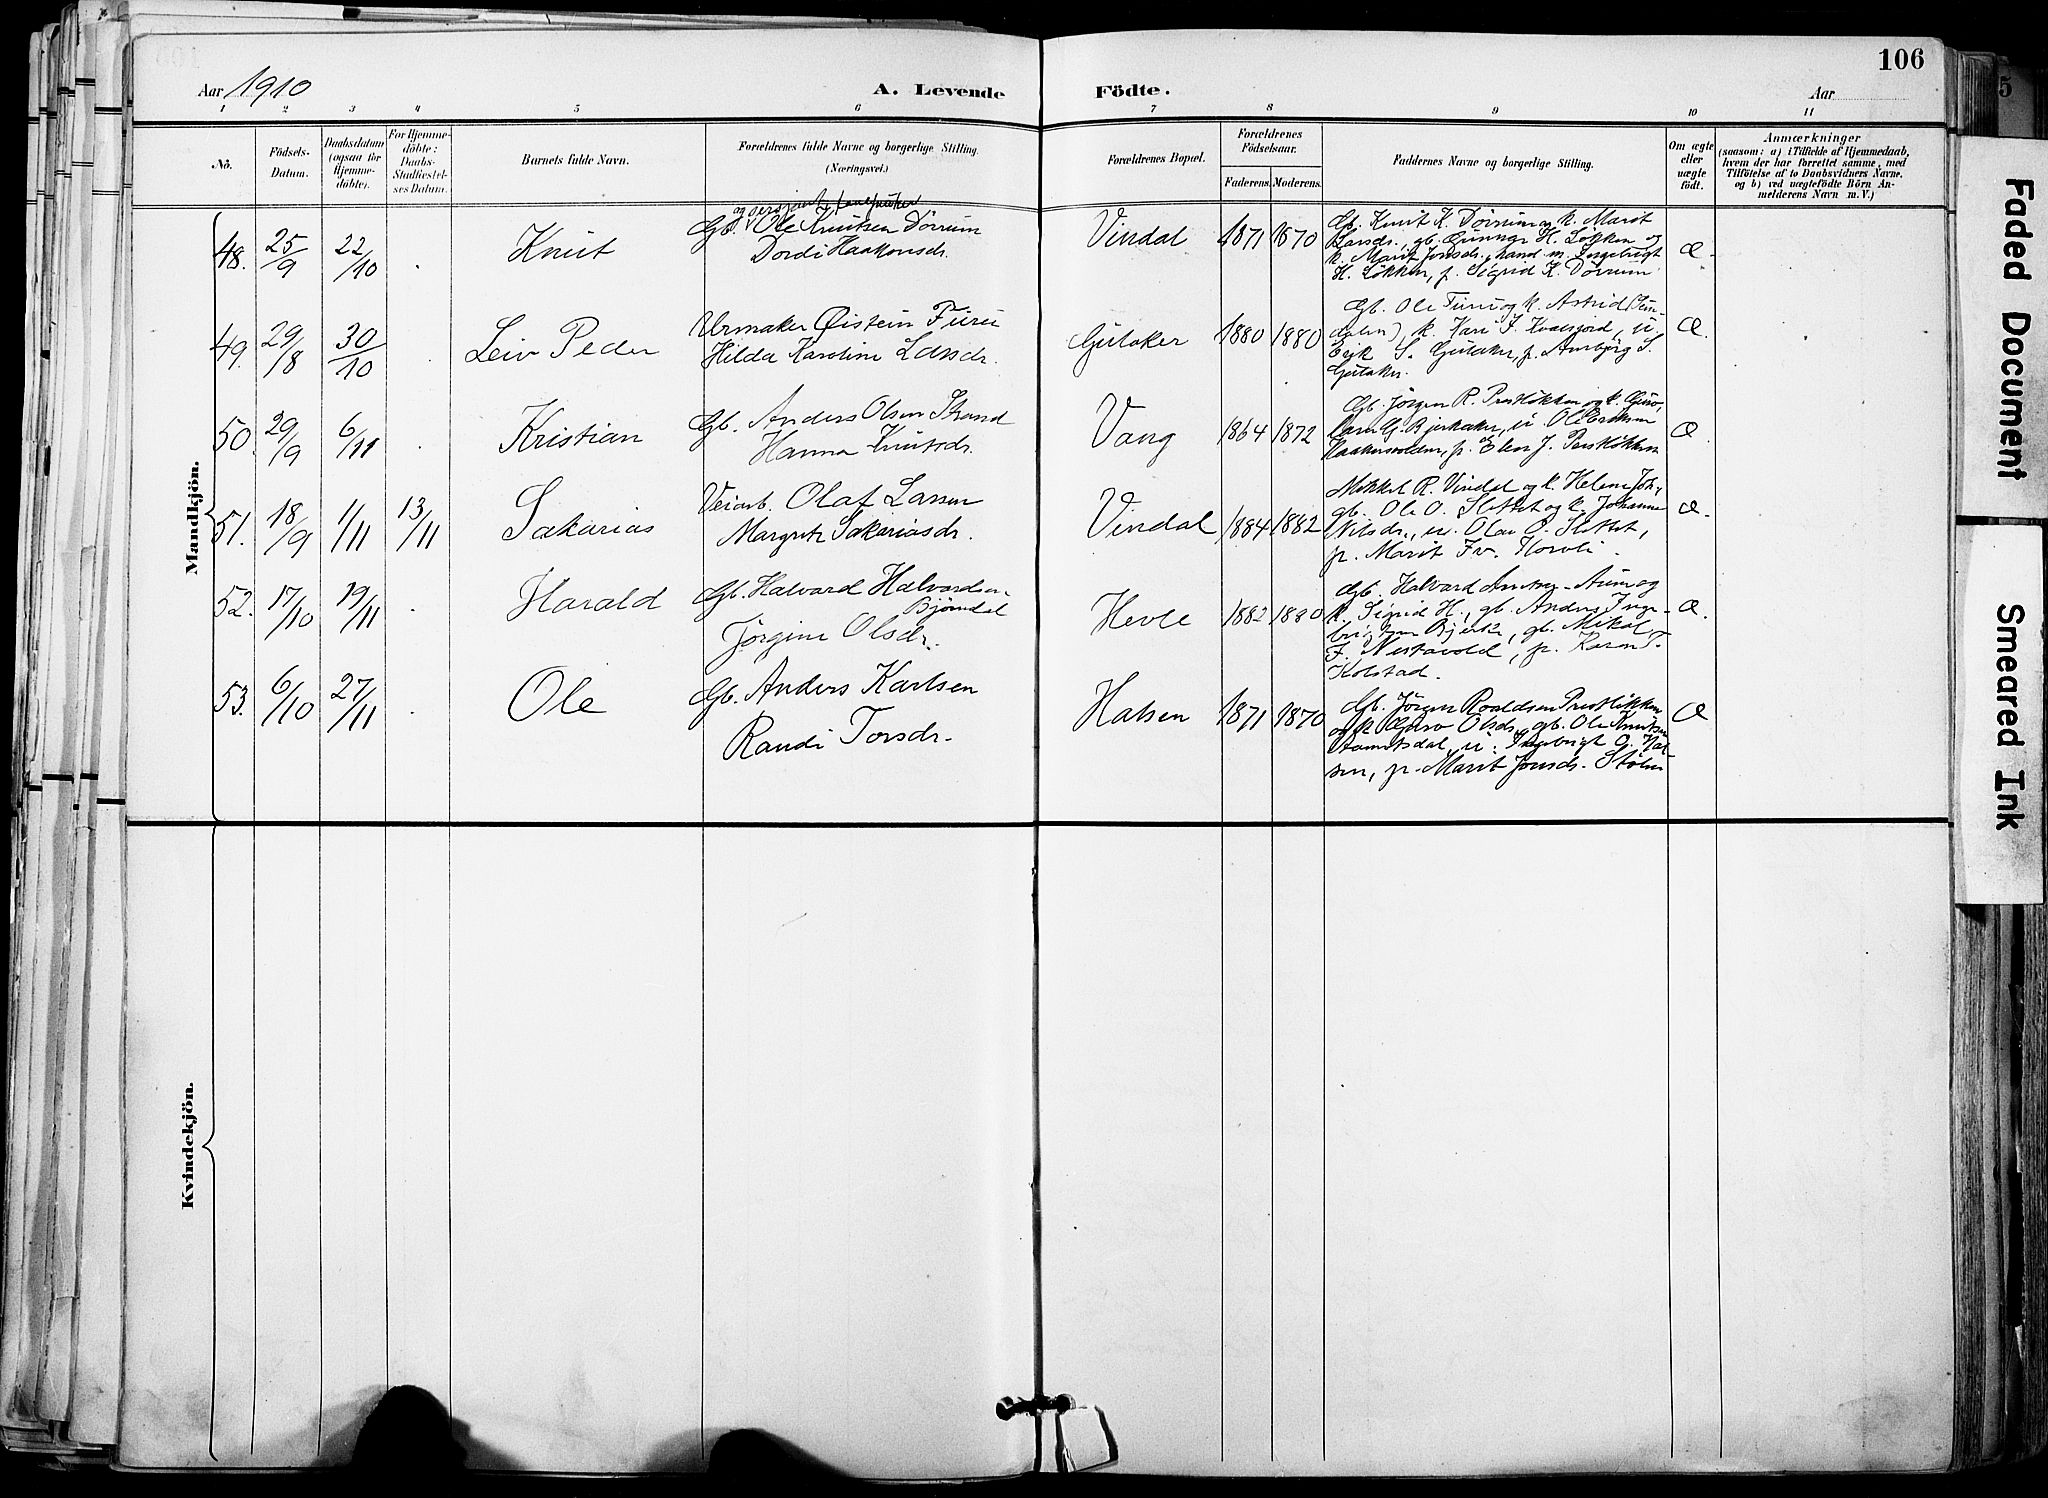 106
Aar 1910
A. Levende
Födte.
Aar
1 2 3 4 5 6 7 8 9 10 11
No.
Födsels-
Datum.
Daabsdatum
(ogsaa for
Hjemme-
döbte).
For Hjemme-
döbte:
Daabs-
Stadfæstel-
ses Datum.
Barnets fulde Navn.
Forældrenes fulde Navne og borgerlige Stilling.
(Næringsvei.)
Forældrenes Bopæl.
Forældrenes
Födselsaar.
Faderens. Moderens.
Faddernes Navne og borgerlige Stilling.
Om ægte
eller
uægte
födt.
Anmærkninger
(saasom: a) i Tilfælde af Hjemmedaab,
hvem der har forrettet samme, med
Tilföielse af to Daabsvidners Navne,
og b) ved uægtefödte Börn An-
melderens Navn m. V.)
Mandkjön.
48. 25/9 22/10 Knut
Gb. Ole Knutsen Dørrum
Dordi Haakonsdr.
Vindal 1871 1870
Gb. Knut K. Dørrum og k. Marit
Larsdr., gb. Gunnar H. Løkken og
k. Marit Jonsdr., Ingebrigt
H. Løkken, p. Sigrid K. Dørrum
Æ.
49. 29/8 30/10 Leiv Peder
Urmaker Øistein Furu
Hilda Karoline Larsdr.
Gutaker 1880 1880
Gb. Ole Furu og k. Astrid (Sun-
dalen), k. Kari J. u.
S. Gutaker, p. Ambjørg S.
Gutaker.
Æ.
50. 29/9 6/11 Kristian
Gb. Anders Olsen Strand
Hanna Knutsdr.
Vang 1864 1872
Gb. Jörgen R. Presløkken og k. Guro,
G. Bjerkaker, u. Ole Eriksen
p. J. Presløkken
Æ.
51. 18/9 1/11 13/11 Sakarias
Veiarb. Olaf Larsen
Margrete Sakariasdr.
Vindal 1884 1882
Mikkel R. Vindal og k. Helene Joh.,
gb. Ole O. Slettet og k. Johanne
Nilsdr., u. Olav O. Slettet,
p. Marit
Æ.
52. 17/10 19/11 Harald
Gb. Halvard Halvardsen
Bjørndal
Jörgine Olsdr.
Hevle 1882 1880
Gb. Halvard Aune og
k. Sigrid H., gb. Anders Inge-
Bjerke, gb. Mikal
F. Nestavold, p. Karen T.
Kolstad.
Æ.
53. 6/10 27/11 Ole
Gb. Anders Karlsen
Randi Torsdr.
Halsen 1871 1870
Gb. Jörgen Roaldsen Presløkken
og k. Guro Olsdr., gb. Ole Knutsen
u. Ingebrigt O. Hal-
sen, p. Marit Jonsdr. Stølen
Æ
Kvindekjön.
Faded Document
Smeared Ink
5